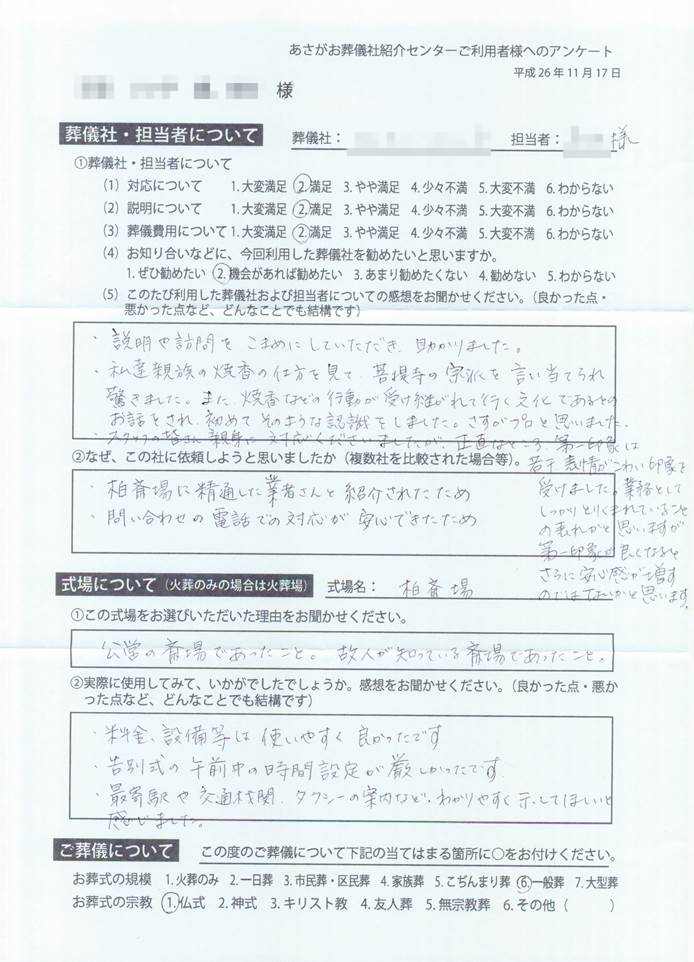 あさがお葬儀社紹介センターご利用者様へのアンケート
平成26年11月17日
様
葬儀社・担当者について 葬儀社： 担当者： 様
①葬儀社・担当者について
（1）対応について 1.大変満足 2.満足 3.やや満足 4.少々不満 5.大変不満 6.わからない
（2）説明について 1.大変満足 2.満足 3.やや満足 4.少々不満 5.大変不満 6.わからない
（3）葬儀費用について 1.大変満足 2.満足 3.やや満足 4.少々不満 5.大変不満 6.わからない
（4）お知り合いなどに、今回利用した葬儀社を勧めたいと思いますか。
1.ぜひ勧めたい 2.機会があれば勧めたい 3.あまり勧めたくない 4.勧めない 5.わからない
（5）このたび利用した葬儀社および担当者についての感想をお聞かせください。（良かった点・
悪かった点など、どんなことでも結構です）
・説明や訪問を こまめにしていただき、助かりました。
・私達親族の焼香の仕方を見て、菩提寺の宗派を言い当てられ
驚きました。また、焼香などの行動が受け継がれて行く文化であるとの
お話をされ、初めてそのような認識をしました。さすがプロと思いました。
・スタッフの皆さん親身に対応くださいましたが、正直なところ、第一印象は
若干 表情がこわい印象を
受けました。業務として
しっかりとりくまれていること
の表れかと思いますが
第一印象が良くなると
さらに安心感が増す
のではないかと思います。
②なぜ、この社に依頼しようと思いましたか（複数社を比較された場合等）。
・柏斎場に精通した業者さんと紹介されたため
・問い合わせの電話での対応が安心できたため
式場について（火葬のみの場合は火葬場） 式場名： 柏斎場
①この式場をお選びいただいた理由をお聞かせください。
公営の斎場であったこと。 故人が知っている斎場であったこと。
②実際に使用してみて、いかがでしたでしょうか。感想をお聞かせください。（良かった点・悪か
った点など、どんなことでも結構です）
・料金、設備等は使いやすく良かったです
・告別式の午前中の時間設定が厳しかったです
・最寄駅や交通機関、タクシーの案内など、わかりやすく示してほしいと
感じました。
ご葬儀について この度のご葬儀について下記の当てはまる箇所に○をお付けください。
お葬式の規模 1.火葬のみ 2.一日葬 3.市民葬・区民葬 4.家族葬 5.こぢんまり葬 6.一般葬 7.大型葬
お葬式の宗教 1.仏式 2.神式 3.キリスト教 4.友人葬 5.無宗教葬 6.その他（ ）